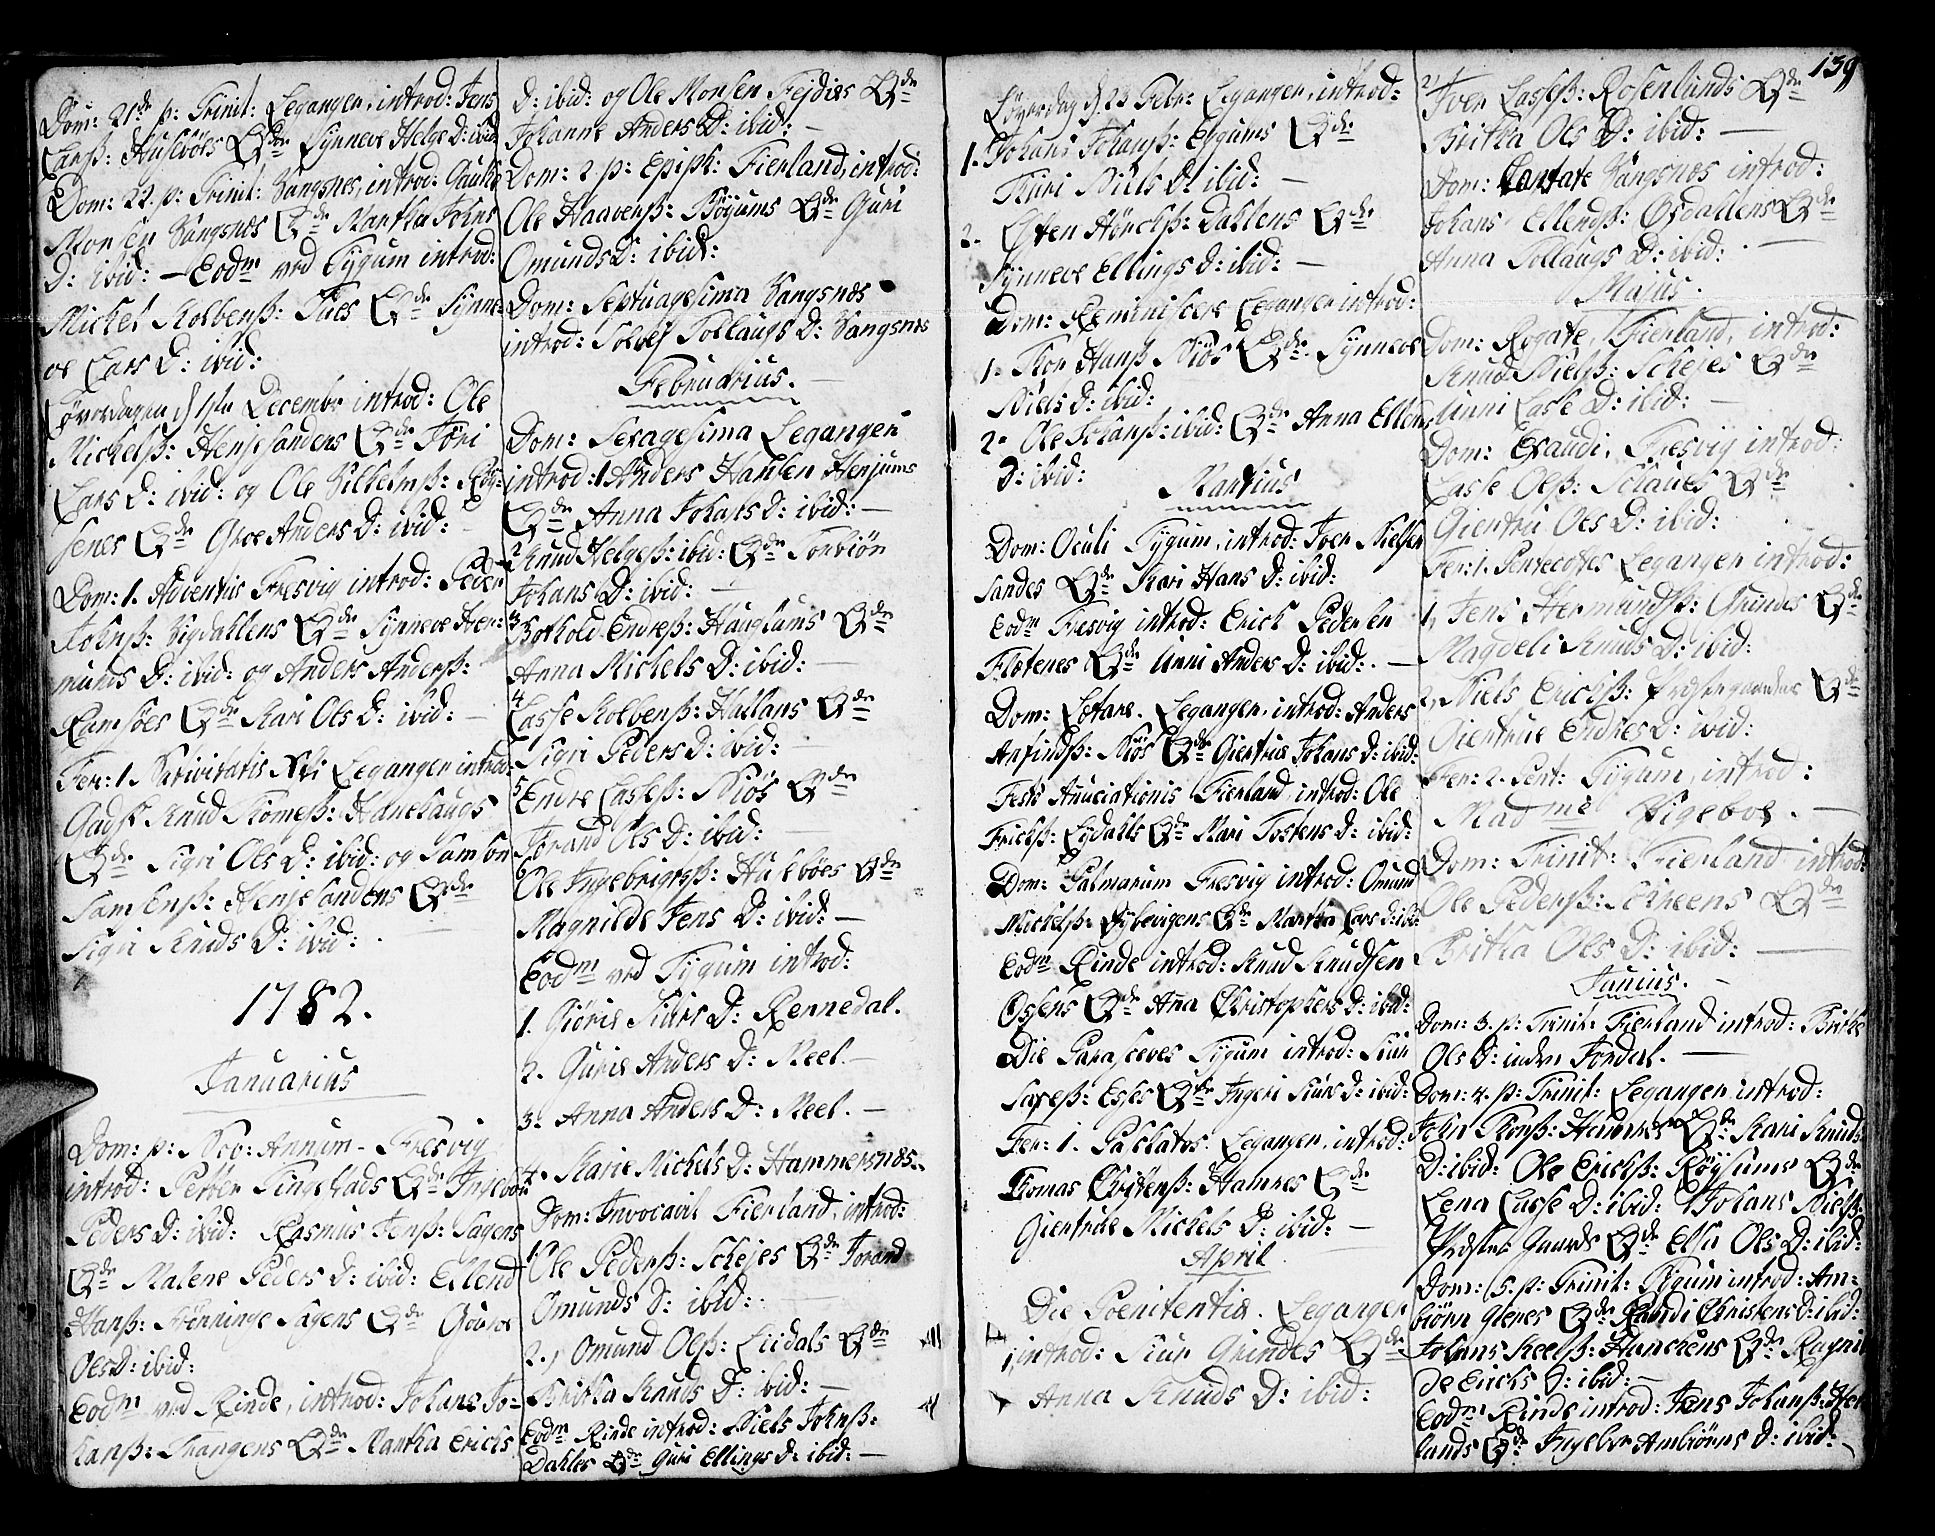 Dom: 21de p: Trinit: Leganger, introd: Jens
Larsß: Husebøes Qvde Synneve Helge D: ibid
Dom: 22. p: Trinit: Vangsnes, introd: Gautte
Monsen Vangsnes Qvde Martha Johns
D: ibid: — Eodm ved Tygum introd:
Mickel Kolbenß: Tues Qvde Synne-
ve Lars D: ibid:
Løverdagen d 1ste Decembr introd: Ole
Mickelsß: Henjesanders Qvde Jøri
Lars D: ibid: og Ole Vilhelmß: Røy-
senes Qvde Groe Anders D: ibid:
Dom: 1. Adventus Fresvig introd: Peder
Johnß: Vigdahlens Qvde Synneve Her-
munds D: ibid: og Anders Andersß:
Ramsøes Qvde Kari Ols D: ibid: —
Fer: 1. Nativitatis Xsti Leganger introd:
Gadsf Knud Tromeß: Hanehaugs
Qvde Sigri Ols D: ibid: og Samson
Samsenß: Henjesandens Qvde
Sigri Knuds D: ibid:
1782.
Januarius
Dom: p: Nov: Annum - Fresvig
introd: Peder Tingstads Qvde Ingebor
Peders D: ibid: Rasmus Jensß: Sagens
Qvde Malene Peders D: ibid: Ellend
Hansß: Fønninge Sagens Qvde Gøbroe
Ols D: ibid:
Eodm ved Rinde, introd: Johans Jo-
hansß: Thangens Qvde Martha Erichs
D: ibid: og Ole Monsen Fejdies Qvde
Johanne Anders D: ibid: —
Dom: 2 p: Epiph: Fierland, introd:
Ole Haavenß: Bøyums Qvde Guri
Omunds D: ibid:
Dom: Septuagesima Vangsnes
introd: Solvej Tollaugs D: Vangsnes
Februarius. —
Dom: Sexagesima Leganger
introd: 1 Anders Hansen Henjums
Qvde Anna Johans D: ibid: —
2 Knud Helgesß: ibid: Qvde Torbiør
Johans D: ibid: —
3 Botholdt Endresß: Hauglums Qvde
Anna Mickels D: ibid: —
4 Lasse Kolbenß: Hallans Qvde
Sigri Peders D: ibid:
5 Endre Lasseß: Niøs Qvde
Jorand Ols D: ibid:
6 Ole Ingebrigtsß: Husebøes Qvde
Magnilde Jens D: ibid: —
Eodm ved Tygum introd:
1. Giørie Siurs D: Rennedal.
2. Gurie Anders D: Meel. —
3. Anna Anders D: Meel. —
4. Karie Mickels D: Hammersnes.
Dom: Invocavit Fierland, introd:
1. Ole Pedersß: Schejes Qvde Jorand
Omunds D: ibid:
2., Omund Olsß: Liidals Qvde
Britha Knuds D: ibid: —
Eodm Rinde introd: Niels Johnß:
Dahles Qvde Guri Ellings D: ibid: —
Løverdag d. 23 Febr: Leganger, introd:
1. Johans Johansß: Eggums Qvde
Kari Niels D: ibid: —
2. Østen Hørchsß: Dahlens Qvde
Synneve Ellings D: ibid: —
Dom: Reminiscere Leganger introd:
1. Thor Hansß Niøs Qvde Synneve
Niels D: ibid:
2. Ole Johansß: ibid: Qvde Anna Ellens
D: ibid:
Martius
Dom: Oculi Tygum, introd: Iver Nielsen
Sandes Qvde Kari Hans D: ibid:
Eodm Fresvig introd: Erick Pedersen
Flotenes Qvde Unni Anders D: ibid: —
Dom: Lætare. Leganger, introd: Anders
Anfindsß: Niøs Qvde Giertrue Johans D: ibid:
Festo Anuciationis Fierland introd: Ole
Erichsß: Eydahls Qvde Mari Tostens D: ibid:
Dom: Palmarum Fresvig introd: Omund
Mickelsß: Dybevigens Qvde Martha Lars D: ibd:
Eodm Rinde introd: Knud Knudsen
Ossens Qvde Ana Christophers D: ibid:
Die Parasceves Tygum introd: Siur
Saxeß: Eses Qvde Ingeri Siurs D: ibid:
Fer: 1. Paschatos. Leganger, introd:
Thomas Christenß: Hamnes Qvde
Giertrude Mickels D: ibid: —
April
Die Poenitentiæ. Leganger
1, introd: Siur Grindes Qvde
Anna Knuds D: ibid:
139
2, Iver Lassesß: Rosenlunds Qvde
Britha Ols D: ibid: —
Dom: Cantate Vangsnes introd:
Johans Ellendsß: Osdallens Qvde
Anna Tollaugs D: ibid: . —
Majus.
Dom: Rogate, Fierland, introd:
Knud Nielsß: Schejes Qvde
Unni Lasse D: ibid: —
Dom: Exaudi, Fresvig introd:
Lasse Olsß: Schaues Qvde
Giertru Ols D: ibid:
Fer: 1. Pentecostes Leganger introd:
1, Jens Hermundsß: Grindes Qvde
Magdeli Knuds D: ibid:
2, Niels Erichsß: Præstegaardens Qvde
Giertrue Endres D: ibid:
Fer: 2. Pent: Tygum, introd:
Madme Vigeboe. —
Dom: Trinit: Fierland introd:
Ole Pedersß: Schreens Qvde
Britha Ols D: ibid: —
Junius. —
Dom: 3. p: Trinit: Fierland introd: Brithe
Ols D: inden Forderl. —
Dom: 4. p: Trinit: Leganger introd:
John Thorsß: Hamnes Qvde Kari Knuds
D: ibid: Ole Erichsß: Røysums Qvde
Lena Lasse D: ibid: Johans Nielsß:
Præste Gaards Qvde Elsa Ols D: ibid:
Dom: 5. p: Trinit: Tygum introd: Am-
biørn Glenes Qvde Randi Christens D: ibid:
Johans Keelsß: Hanchens Qvde Ragnil
de Erichs D: ibid: —
Eodm Rinde introd: Jens Johansß: Het-
lands Qvde Ingebor Ambiørns D: ibid: